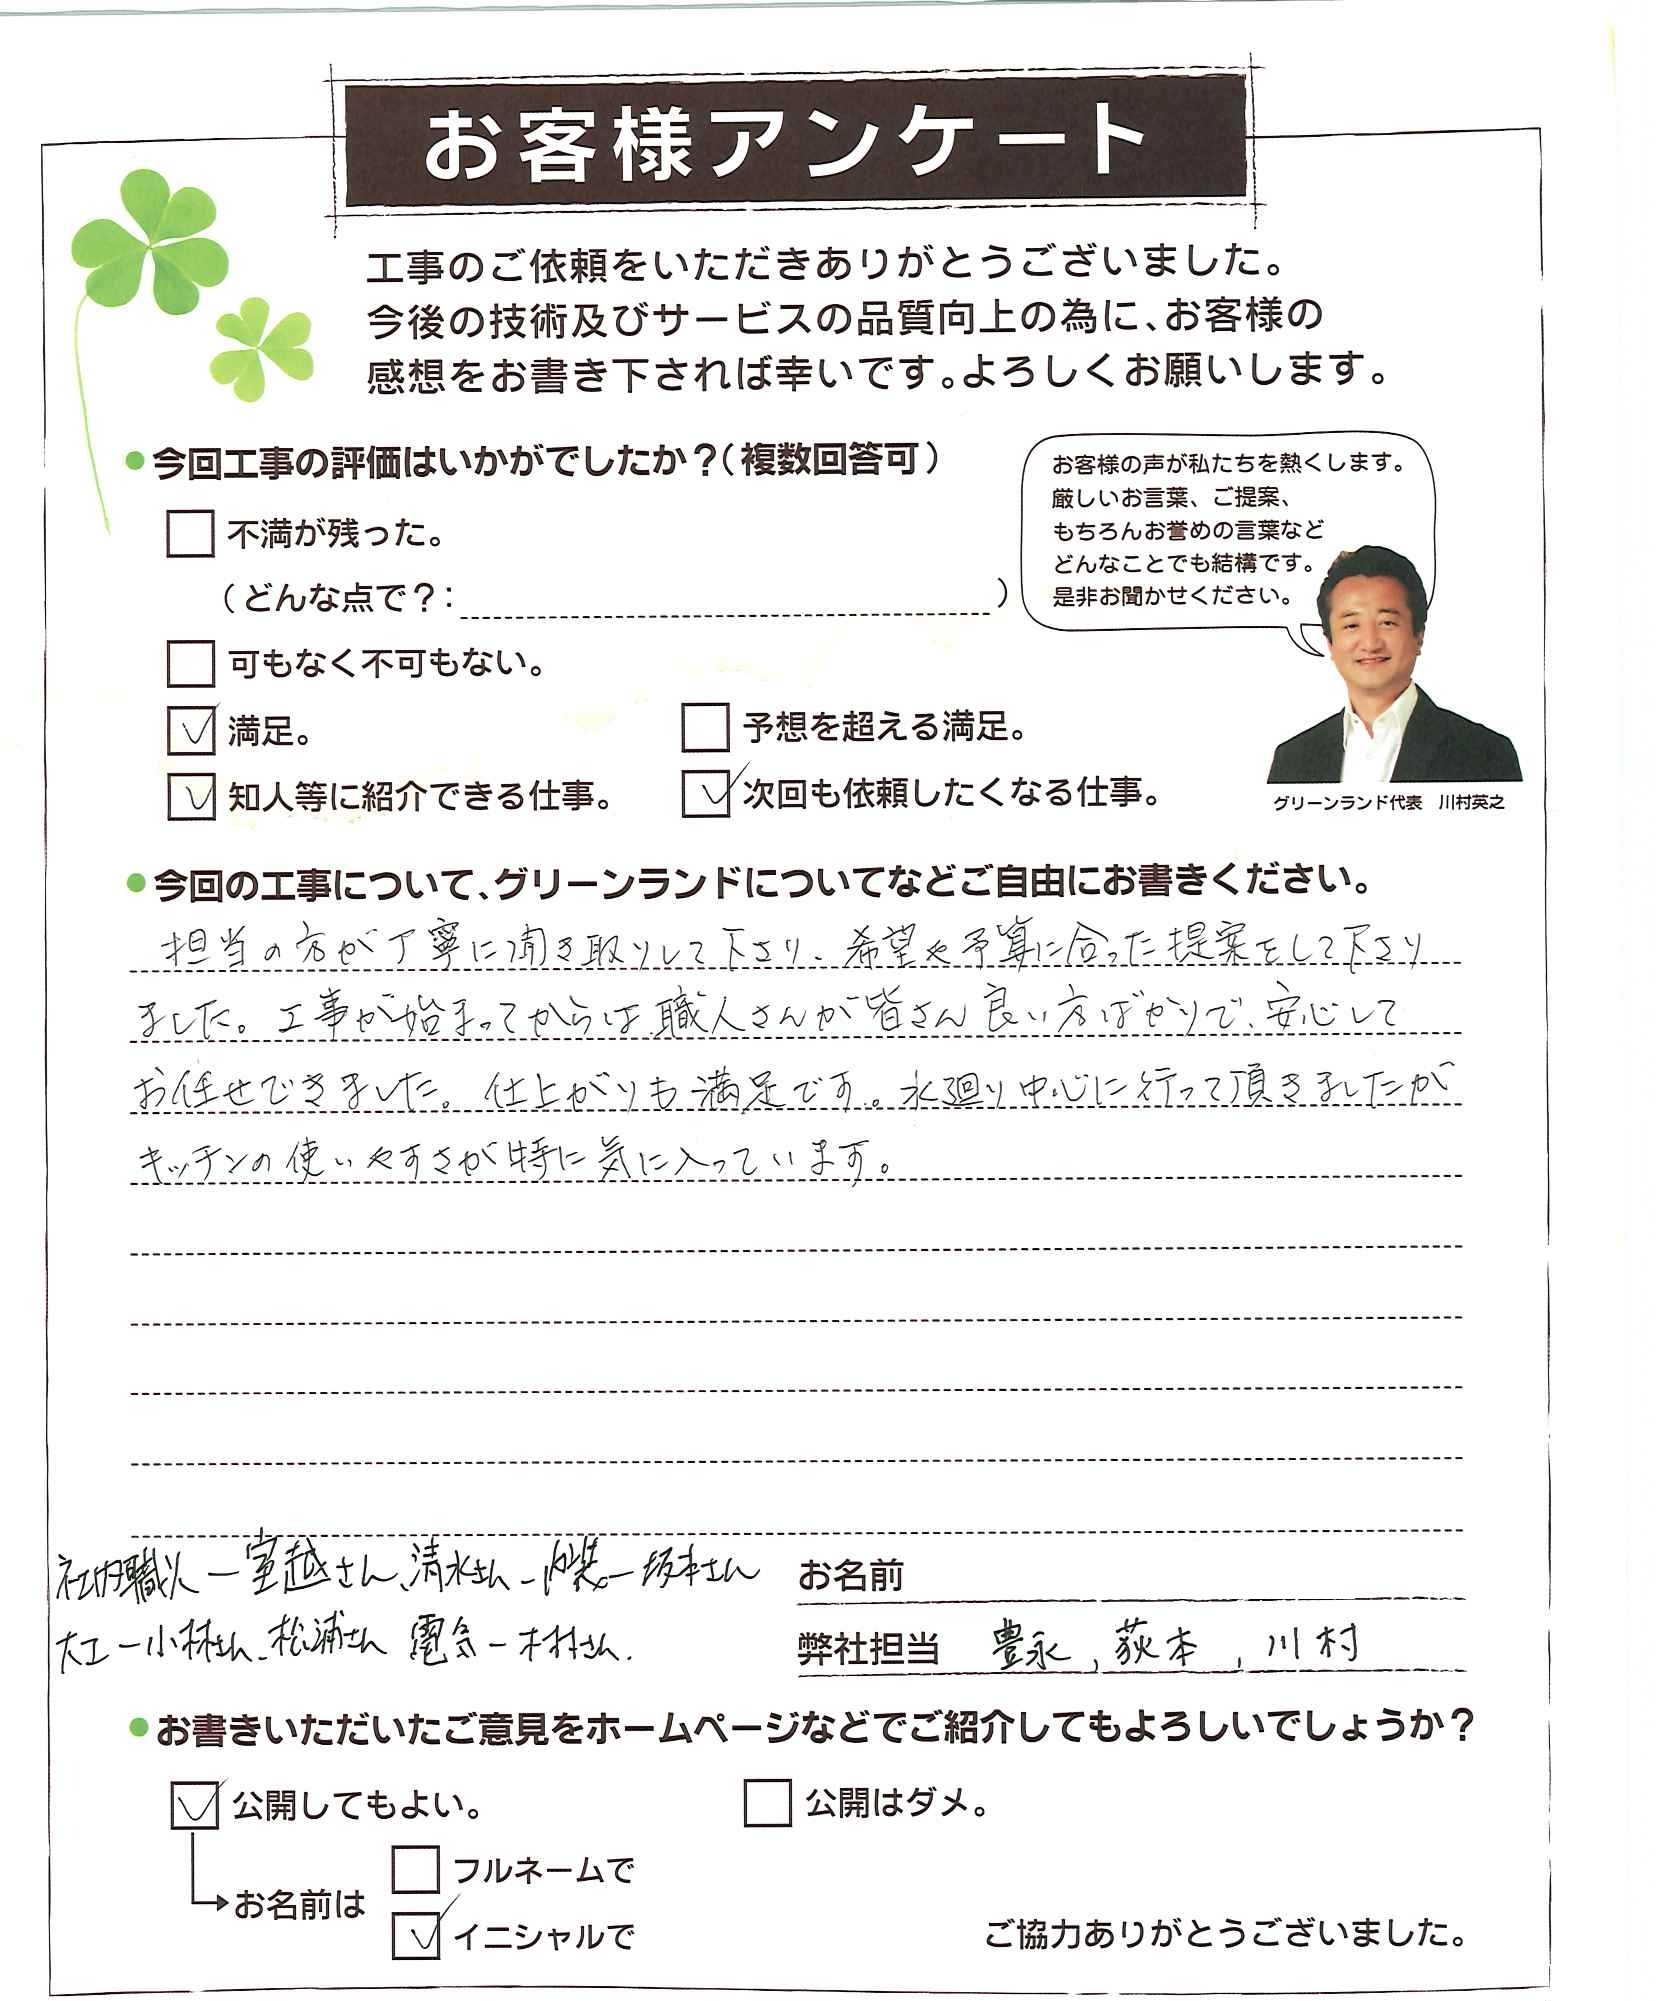 お客様アンケート
工事のご依頼をいただきありがとうございました。
今後の技術及びサービスの品質向上の為に、お客様の
感想をお書き下されば幸いです。よろしくお願いします。
●今回工事の評価はいかがでしたか？（複数回答可）
不満が残った。
（どんな点で？：　）
可もなく不可もない。
満足。
予想を超える満足。
知人等に紹介できる仕事。
次回も依頼したくなる仕事。
お客様の声が私たちを熱くします。
厳しいお言葉、ご提案、
もちろんお誉めの言葉など
どんなことでも結構です。
是非お聞かせください。
グリーンランド代表　川村英之
●今回の工事について、グリーンランドについてなどご自由にお書きください。
担当の方が丁寧に聞き取りして下さり、希望や予算に合った提案をして下さり
ました。工事が始まってからは、職人さんが皆さん良い方ばかりで、安心して
お任せできました。仕上がりも満足です。水廻り中心に行って頂きましたが
キッチンの使いやすさが特に気に入っています。
社内職人ー室越さん、清水さん ー内装ー坂本さん
大工ー小林さん、松浦さん 電気ー木村さん.
お名前
弊社担当　豊永, 荻本, 川村
●お書きいただいたご意見をホームページなどでご紹介してもよろしいでしょうか？
公開してもよい。
公開はダメ。
お名前は
フルネームで
イニシャルで
ご協力ありがとうございました。